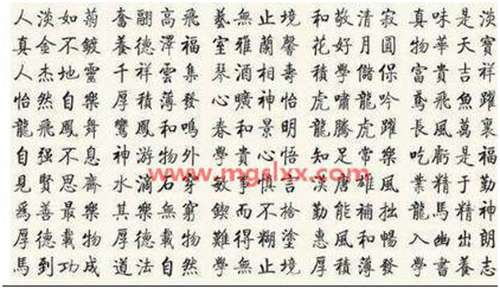 人淡如菊 奮翮高飛 藝無止境 和敬清寂 真味是淡
真金不鍍 養德澤福 室雅蘭馨 花好月圓 物華天寶
人杰地靈 千祥雲集 琴酒相壽 學儲保 富貴吉祥
怡然自樂 厚積薄發 心曠神怡 虎嘯龍吟 鳶飛魚躍
龍飛鳳舞 鸞鳳和鳴 春和景明 龍騰虎躍 長風萬裏
自强不息 神游物外 學貴心悟 知足常樂 吃虧是福
見賢思齋 水滴石穿 敏事慎言 漢唐雄風 業精于勤
www.mgslxx.com
爲善最樂 其樂無窮 鍥而不捨 勤能補拙 龍馬精神
厚德載物 厚德載物 難得糊塗 惠風和暢 入幽出朗
馬到功成 道法自然 學無止境 厚積薄發 學書養志